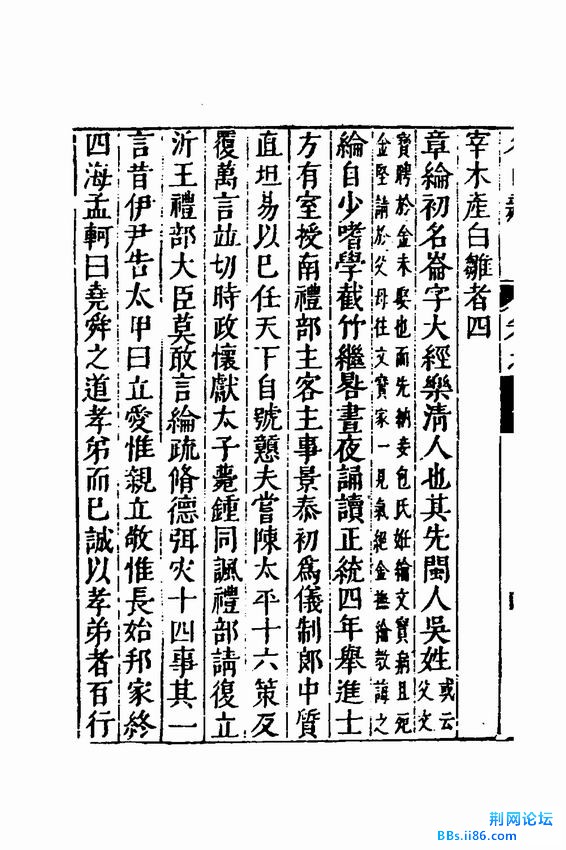 宰木產白雛者四
章綸初名崙字大經樂清人也其先閩人吳姓或云父文
寶聘於金未娶也而先納妾包氏姙綸文寶病且死
金堅請於父母往文寶家一見氣絕金撫綸教誨之
綸自少嗜學截竹繼晷晝夜誦讀正統四年舉進士
方有室授南禮部主客主事景泰初爲儀制郎中質
直坦易以已任天下自號戇夫嘗陳太平十六策反
覆萬言並切時政懷獻太子薨鍾同諷禮部請復立
沂王禮部大臣莫敢言綸疏脩德弭灾十四事其一
言昔伊尹告太甲曰立愛惟親立敬惟長始邦家終
四海孟軻曰堯舜之道孝弟而已誠以孝弟者百行
荆网论坛
BBs.ii86.com